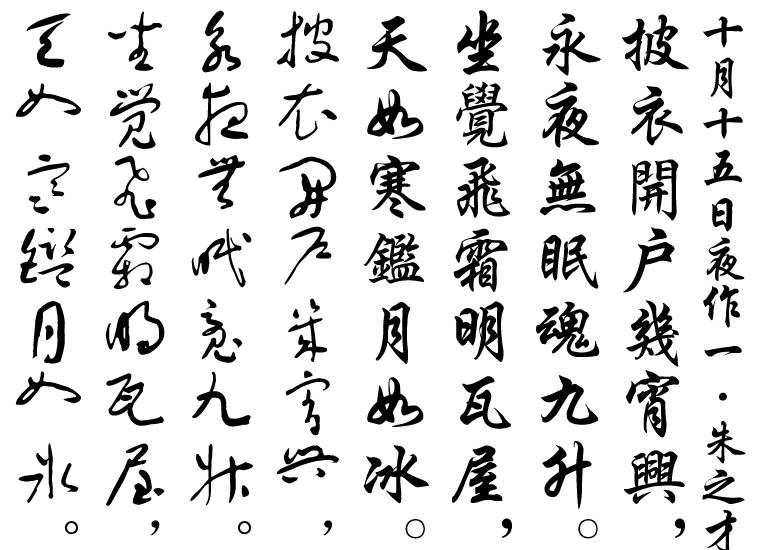 十月十五日夜作一·朱之才
披衣開户幾宵興，
永夜無眠魂九升。
坐覺飛霜明瓦屋，
天如寒鑑月如冰。
披衣開户幾宵興，
永夜無眠魂九升。
坐覺飛霜明瓦屋，
天如寒鑑月如冰。